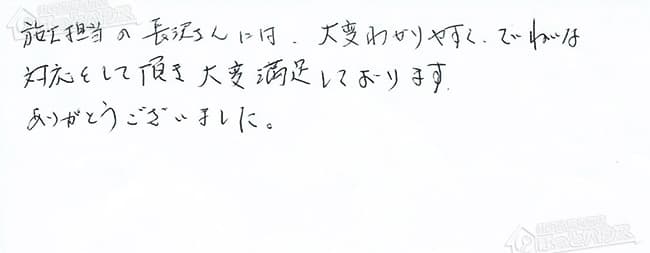 施工担当の長沢さんには、大変わかりやすく、ていねいな
対応をして頂き大変満足しております。
ありがとうございました。